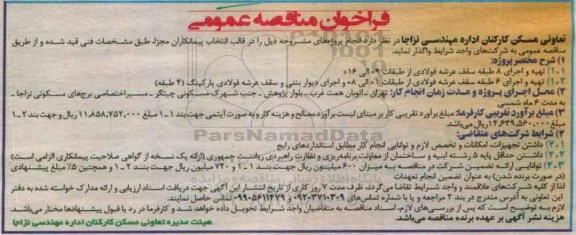 فراخوان مناقصه عمومی
تعاونی مسکن کارکنان اداره مهندسی نزاجا در نظر دارد انجام پروژه‌های مشروحه ذیل را در قالب انتخاب پیمانکاران مجزا، طبق مشخصات فنی قید شده و از طریق
مناقصه عمومی به شرکت‌های واجد شرایط واگذار نماید.
۱) شرح مختصر پروژه:
۱-۱) تهیه و اجرای ۸ طبقه سقف عرشه فولادی از طبقات ۰۹ الی ۱۶+
۱-۲) تهیه و اجرای ۶ طبقه سقف عرشه فولادی از طبقات ۰۱ الی ۰۸+ و اجرای دیوار بتنی و سقف عرشه فولادی پارکینگ (۴ طبقه)
۲) محل اجرای پروژه و مدت زمان انجام کار: تهران - اتوبان همت غرب - بلوار پژوهش - جنب شهرک مسکونی چیتگر - مسیر اختصاصی برج‌های مسکونی نزاجا -
به مدت ۶ ماه شمسی
۳) مبلغ برآورد تقریبی کارفرما: مبلغ برآورد تقریبی کار بر مبنای لیست برآورد مصالح و هزینه کار و به صورت آیتمی جهت بند ۱-۱ مبلغ ۱۱.۸۵۸.۷۵۲.۰۰۰ ریال و جهت بند ۲-۱
مبلغ ۱۴.۶۳۹.۵۶۰.۰۰۰ ریال می‌باشد.
۴) شرایط شرکت‌های متقاضی:
داشتن تجهیزات، امکانات و تخصص لازم و توانایی انجام کار مطابق استانداردهای رایج
داشتن حداقل پایه ۵ رشته ابنیه و ساختمان از معاونت برنامه‌ریزی و نظارت راهبردی ریاست جمهوری (ارائه یک نسخه از گواهی صلاحیت پیمانکاری الزامی است)
توانایی ارائه تضمین شرکت در مناقصه به میزان ۶۰۰ میلیون ریال جهت بند ۱-۱ و ۷۴۰ میلیون ریال جهت بند ۲-۱ و همچنین ۵٪ مبلغ پیشنهادی
(در صورت برنده شدن) به عنوان تضمین انجام تعهدات
لذا از کلیه شرکت‌های علاقمند و واجد شرایط تقاضا می‌گردد، ظرف مدت ۷ روز کاری از تاریخ انتشار این آگهی جهت دریافت اسناد ارزیابی و ارائه مدارک خواسته شده به دفتر
این تعاونی به آدرس مندرج در بند ۲ مراجعه و یا با شماره تماس‌های ۰۹۲۰۳۷۱۰۳۰۹ و ۰۹۹۰۵۶۱۱۴۷۹ تماس حاصل نمایند.
لازم به توضیح است که پس از بررسی‌های لازم، اسناد مناقصه به متقاضیان واجد شرایط تحویل داده خواهد شد و کارفرما در رد یا قبول پیشنهادها مختار می‌باشد.
هزینه نشر آگهی بر عهده برنده مناقصه می‌باشد.
هیئت مدیره تعاونی مسکن کارکنان اداره مهندسی نزاجا
ParsNamadData